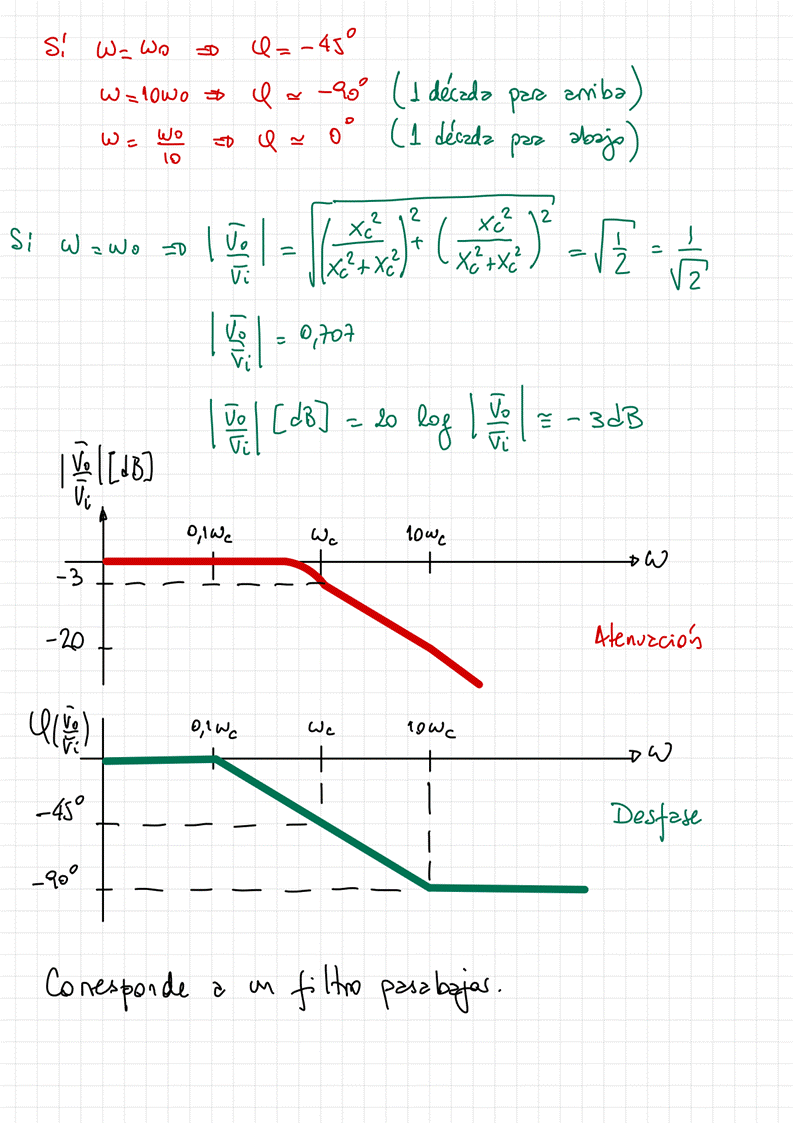 Si ω = ω₀ ⇒ φ = -45°
ω = 10ω₀ ⇒ φ ≃ -90° (1 década para arriba)
ω = ω₀/10 ⇒ φ ≃ 0° (1 década para abajo)
Si ω = ω₀ ⇒ |V̄₀/V̄ᵢ| = √((Xc²/(Xc²+Xc²))² + (Xc²/(Xc²+Xc²))²) = √(1/2) = 1/√2
|V̄₀/V̄ᵢ| = 0,707
|V̄₀/V̄ᵢ| [dB] = 20 log |V̄₀/V̄ᵢ| ≅ -3dB
|V̄₀/V̄ᵢ| [dB]
0,1ωc ωc 10ωc
ω
-3
-20
Atenuación
φ(V̄₀/V̄ᵢ)
0,1ωc ωc 10ωc
ω
-45°
Desfase
-90°
Corresponde a un filtro pasabajas.